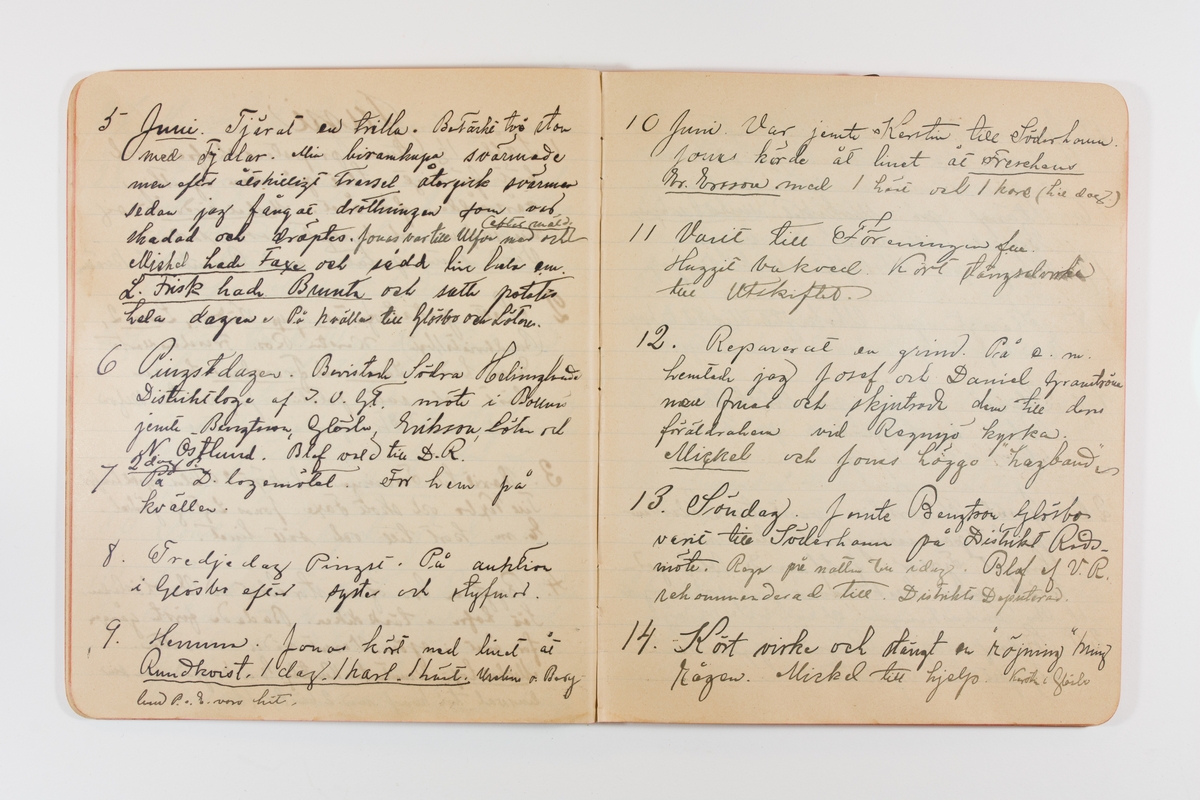 5 Juni. Tjärat en trilla. Betäckt två ston
med Fjellar. Min biramkupa svärmade
men efter åtskilligt trassel återgick svärmen
sedan jag fångat drottningen som var
skadad och dräptes. Jonas var till Ulfve med och
(efter mäld)
Mickel hade Faxe och sådd lin hela em.
L. Frisk hade Brunta och satte potatis
hela dagen. På kvällen till Glösbo och Löten.
6 Pingstdagen. Bevistade Södra Helsinglands
Distriktloge af I. O. G.T. möte i Bollnäs
jemte Bengtson, Glösbo, Erikson, Löten och
N. Östlund. Blef vald till D.R.
2 dag p.
7 På D. logemötet. For hem på
kvällen.
8. Tredjedag Pingst. På auktion
i Glösbo efter syster och styfmor.
9. Hemma. Jonas kört med linet åt
Rundkvist. 1 dag. 1 karl. 1 häst. o. Berg
lund P. o. E. voro hit.
10 Juni. Var jemte Kerstin till Söderhamn.
Jonas körde åt linet åt
Br. Ersson med 1 häst och 1 kare (hel dag)
11 Varit till Föreningen fm.
Huggit bakved. Kört stängselvirke
till Utskiftet.
12. Reparerat en grind. På e. m.
hemtade jag Josef och Daniel Granström
med Jonas och skjutsade dem till deras
föräldrahem vid Regnsjö kyrka.
Mickel och Jonas höggo "hagbande"
13. Söndag. Jemte Bengtson Glösbo
varit till Söderhamn på Distrikt Råds-
möte. Regn på natten till idag. Blef af V. R.
rekommenderad till Distrikts Deputerad.
14. Kört virke och stängt en "röjning" kring
Rågen. Mickel till hjelp. Kerstin i Glösbo